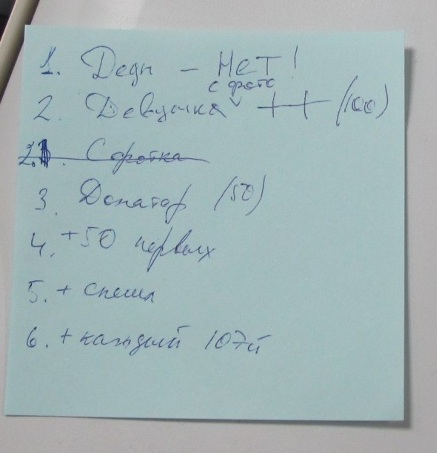 1. Деды - НЕТ!
с фото
2. Девушка ˅ ++ (100)
2. Сиротка
3. Донатор (50)
4. +50 первых
5. + спеша
6. + каждый 107й